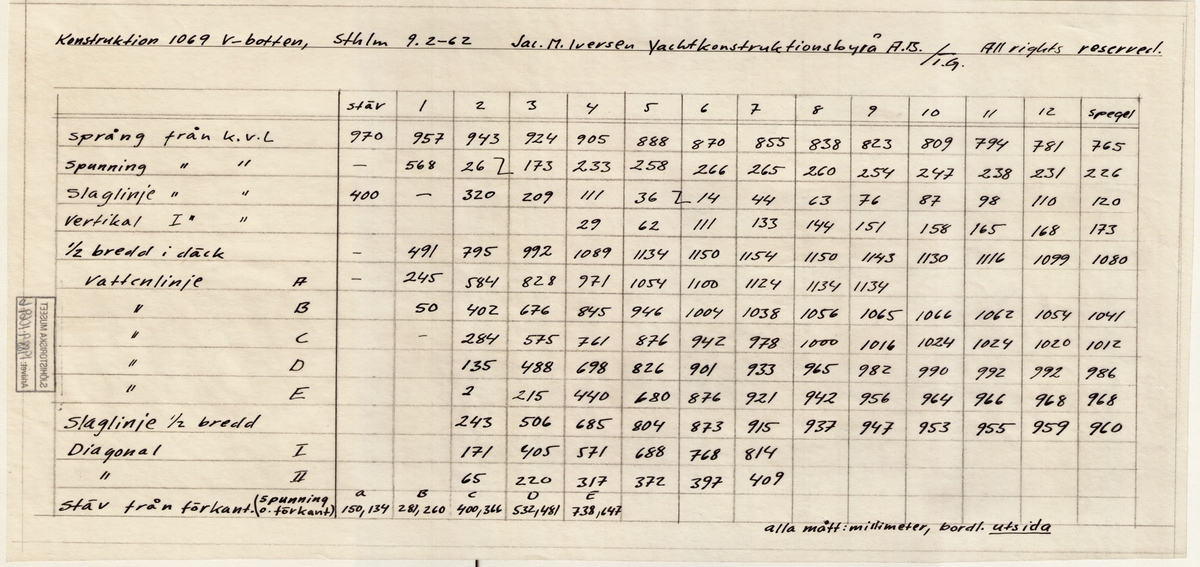 Konstruktion 1069 V-botten, Sthlm 9.2-62 Jac. M. Iversen Yachtkonstruktionsbyrå A.B. /I.G. All rights reserved.
stäv 1 2 3 4 5 6 7 8 9 10 11 12 spegel
språng från k.v.L 970 957 943 924 905 888 870 855 838 823 809 794 781 765
spunning " " — 568 26 173 233 258 266 265 260 254 247 238 231 226
Slaglinje " " 400 — 320 209 111 36 14 44 63 76 87 98 110 120
vertikal I " " 29 62 111 133 144 151 158 165 168 173
1/2 bredd i däck — 491 795 992 1089 1134 1150 1154 1150 1143 1130 1116 1099 1080
Vattenlinje A — 245 584 828 971 1054 1100 1124 1134 1134
" B 50 402 676 845 946 1004 1038 1056 1065 1066 1062 1054 1041
" C — 284 575 761 876 942 978 1000 1016 1024 1024 1020 1012
" D 135 488 698 826 901 933 965 982 990 992 992 986
" E 2 215 440 680 876 921 942 956 964 966 968 968
Slaglinje 1/2 bredd 243 506 685 804 873 915 937 947 953 955 959 960
Diagonal I 171 405 571 688 768 814
" II 65 220 317 372 397 409
a B C D E
Stäv från förkant. (spunning o. förkant) 150,134 281,260 400,366 532,481 738,647
alla mått: millimeter, bordl. utsida
SJÖHISTORISKA MUSEET